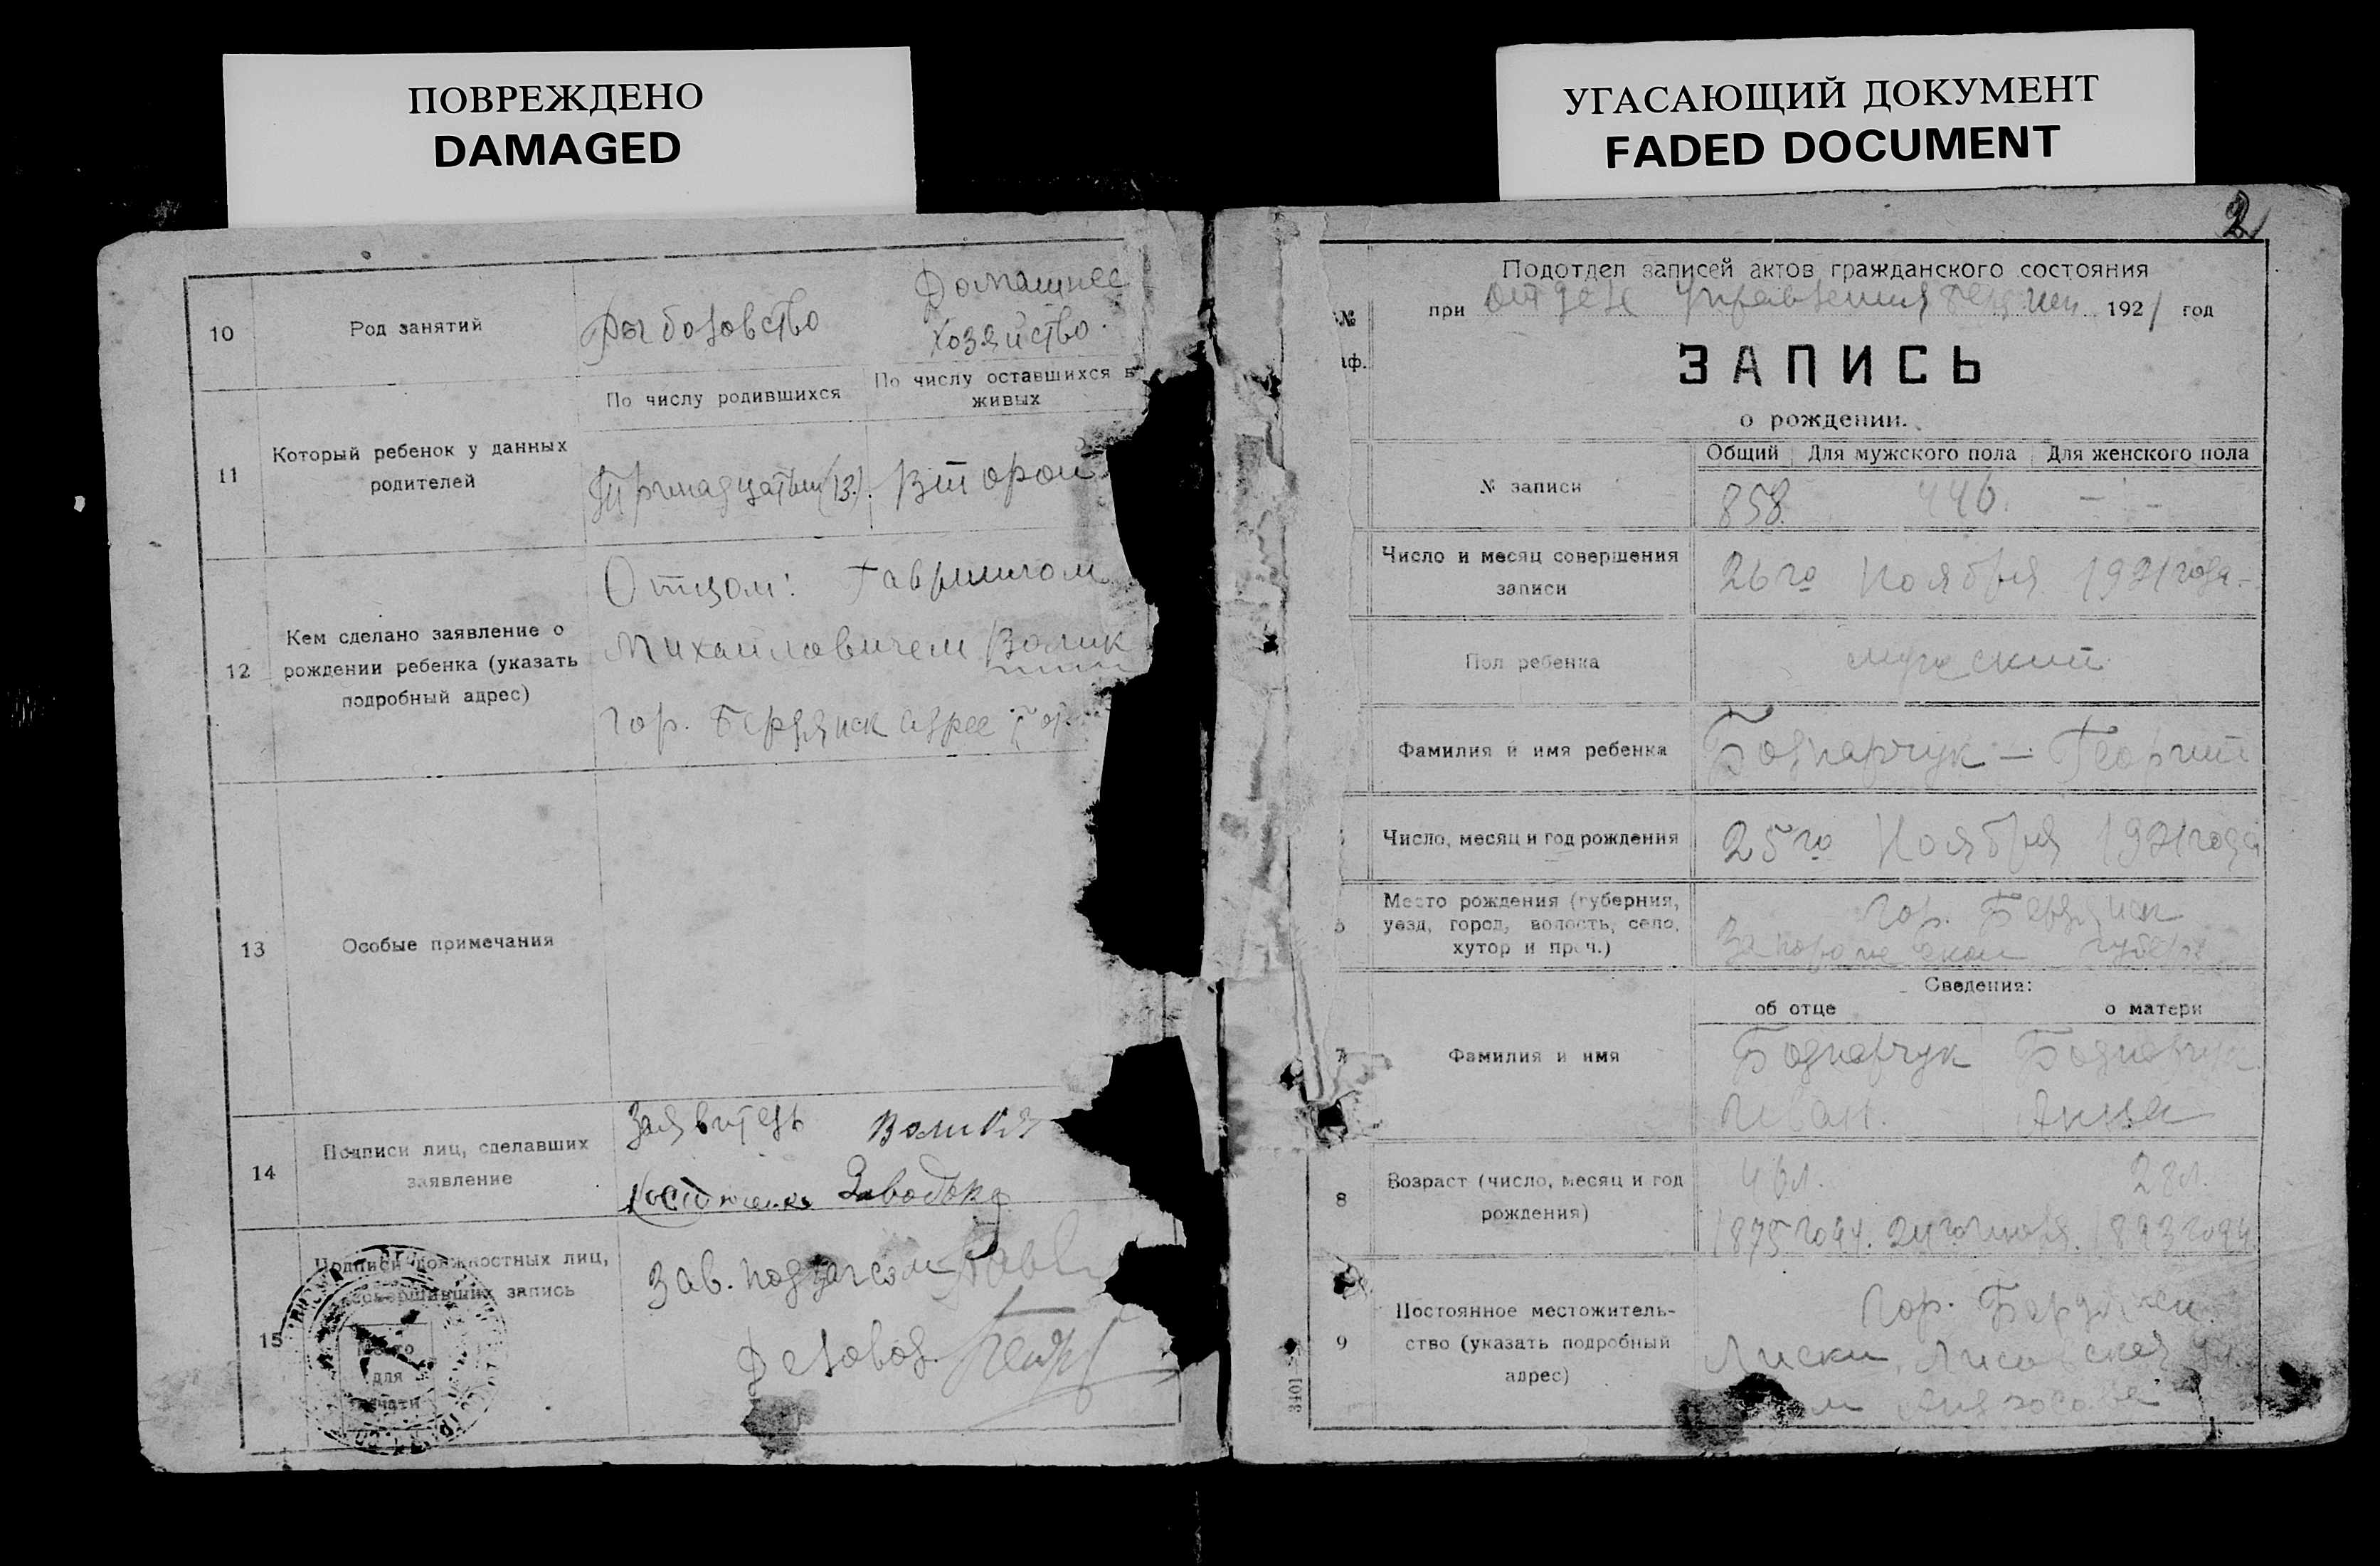 ПОВРЕЖДЕНО
DAMAGED
10
Род занятий
Рыболовство
Домашнее
хозяйство.
11
Который ребенок у данных
родителей
По числу родившихся
По числу оставшихся в
живых
Тринадцатый (13).
Второй
12
Кем сделано заявление о
рождении ребенка (указать
подробный адрес)
Отцом: Гавриилом
Михайловичем Волик
гор. Бердянск адрес
13
Особые примечания
14
Подписи лиц, сделавших
заявление
Заявитель Волик
15
Подписи должностных лиц,
совершивших запись
Место
для
печати
Зав. подзагсом
Деловод.
УГАСАЮЩИЙ ДОКУМЕНТ
FADED DOCUMENT
2
№
Подотдел записей актов гражданского состояния
при Отделе Управления 1921 год
ЗАПИСЬ
о рождении.
№ записи
Общий Для мужского пола Для женского пола
858. 446. — —
Число и месяц совершения
записи
26го Ноября 1921 года
Пол ребенка
мужской
Фамилия и имя ребенка
Боднарчук — Георгий
Число, месяц и год рождения
25го Ноября 1921 года
Место рождения (губерния,
уезд, город, волость, село,
хутор и проч.)
гор. Бердянск
Запорожской губерн
Сведения:
об отце о матери
7
Фамилия и имя
Боднарчук Боднарчук
Иван. Анна
8
Возраст (число, месяц и год
рождения)
46 л. 28 л.
1875 года. 1893 года
9
Постоянное местожитель-
ство (указать подробный
адрес)
Гор. Бердянск
Лиски, Лисовская ул.
3401